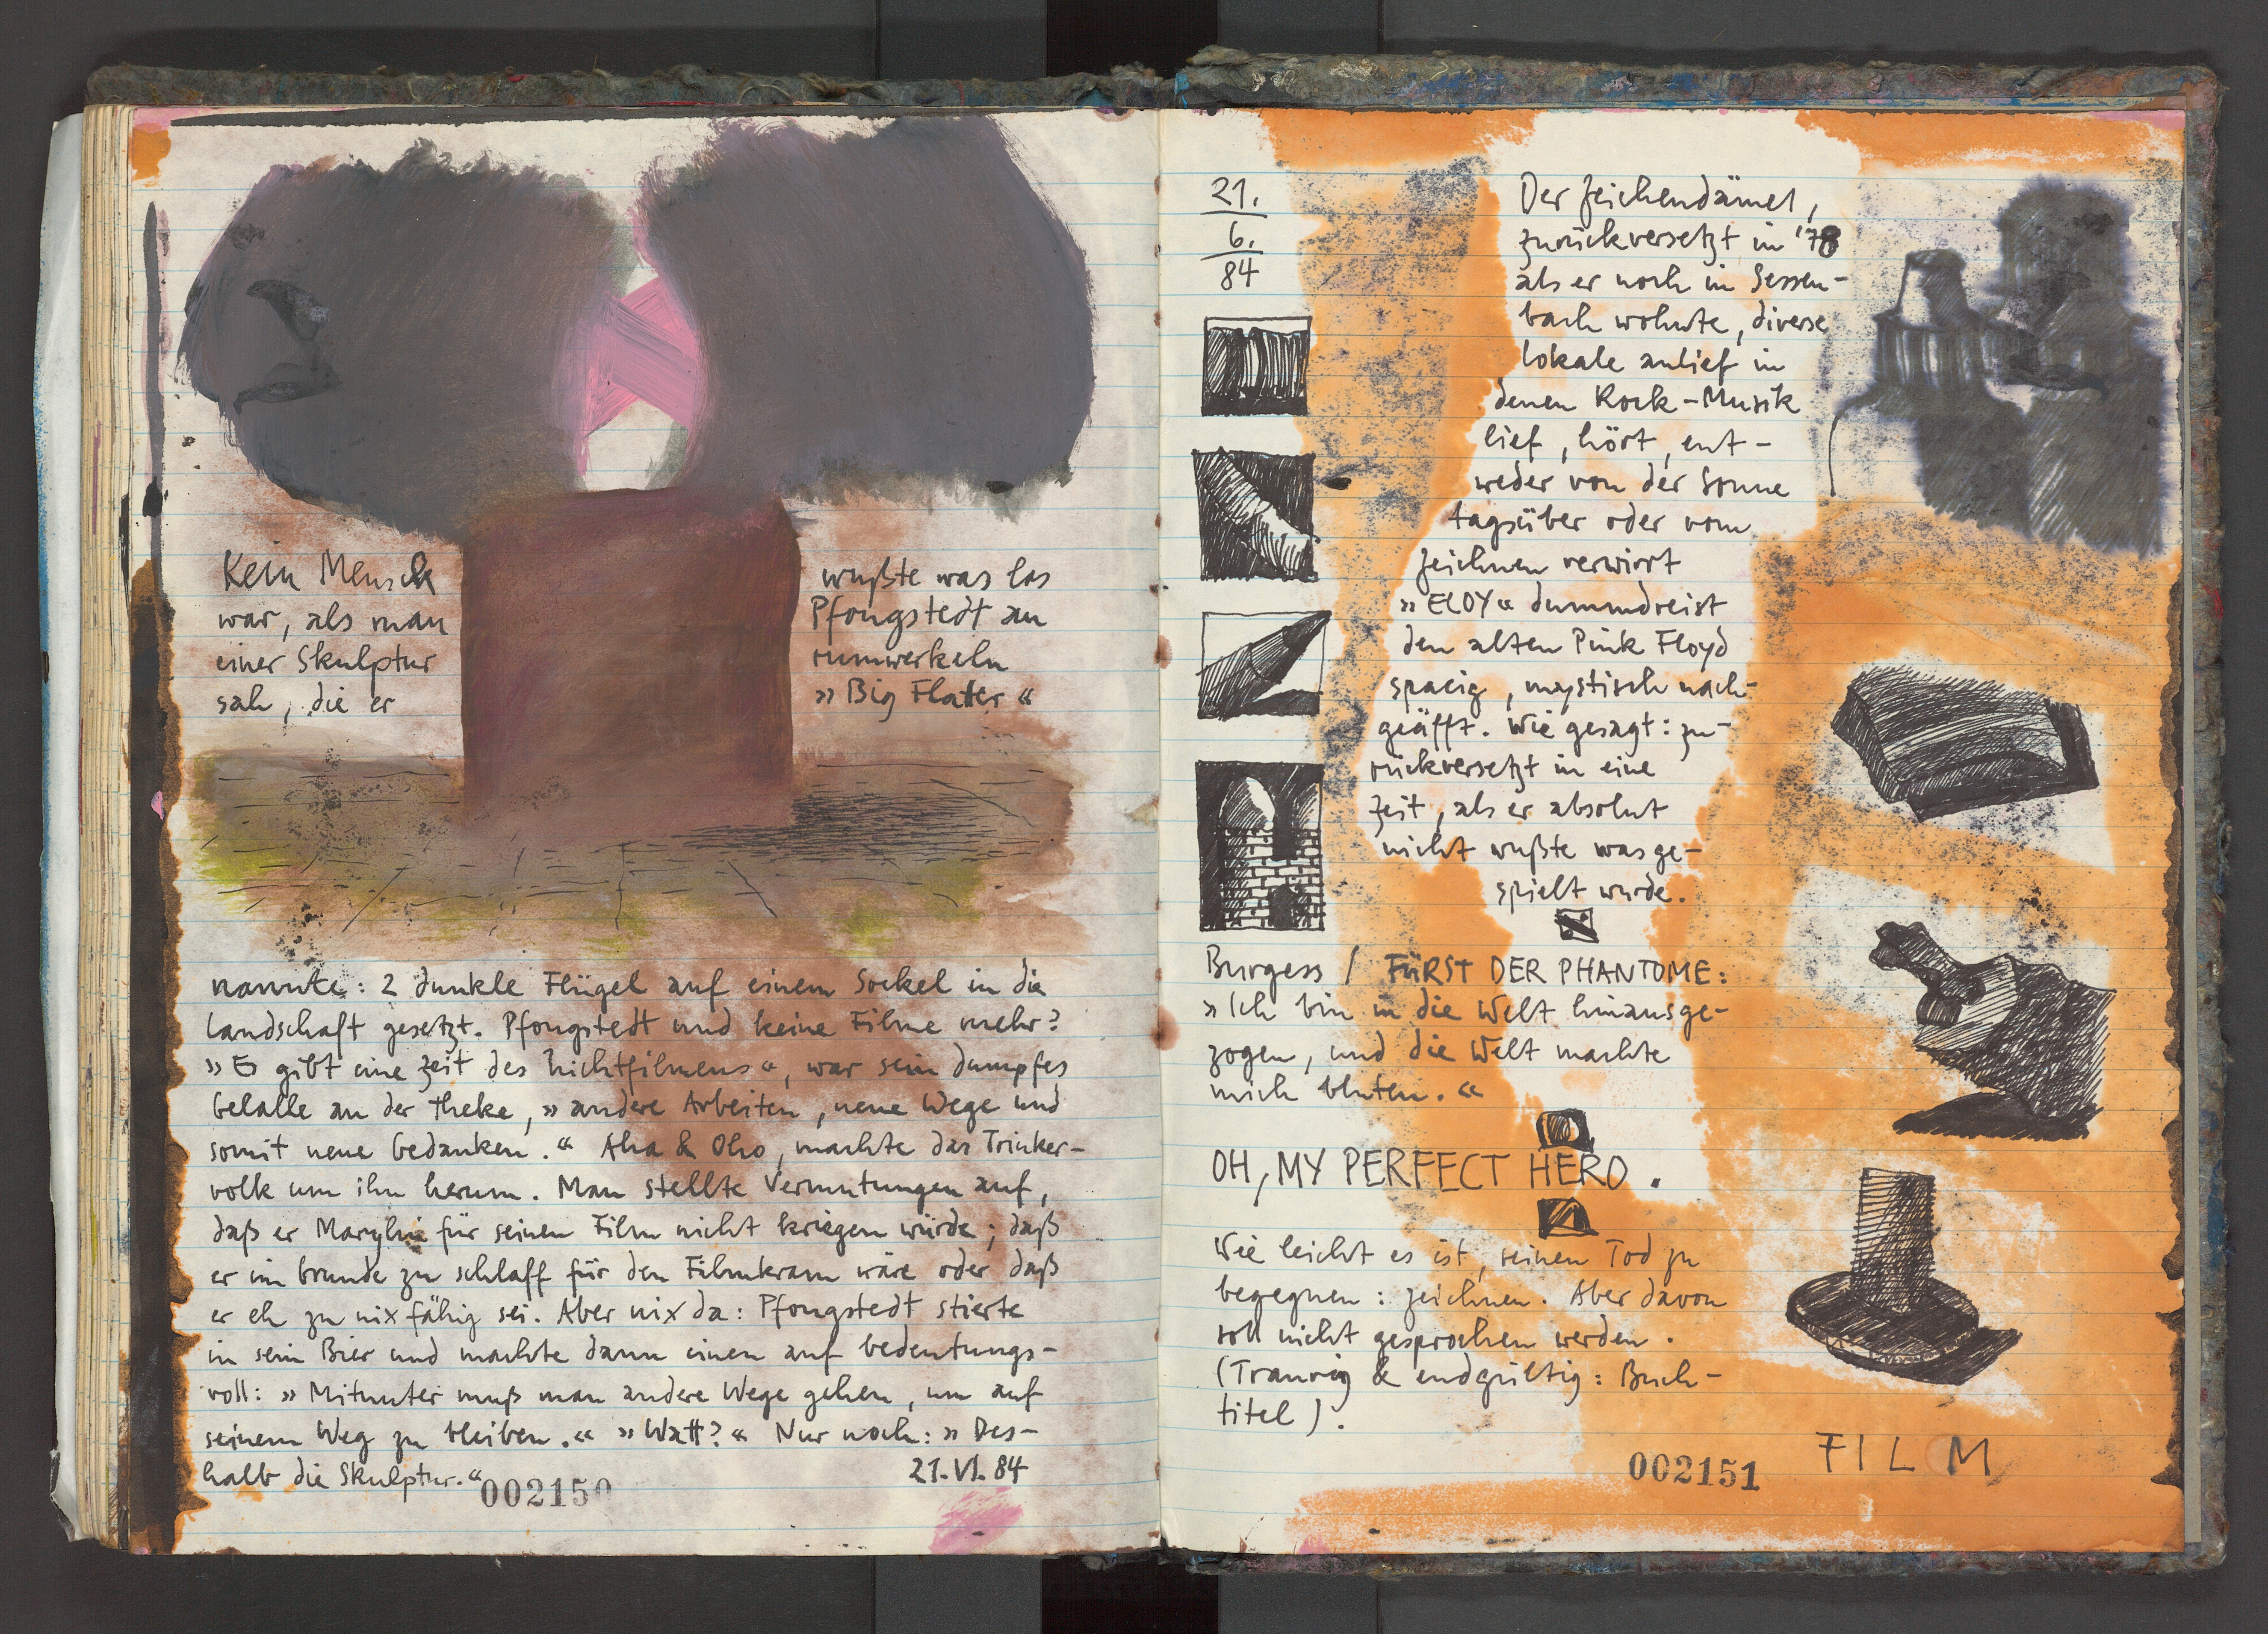 Kein Mensch wußte was los
war, als man Pfongstedt an
einer Skulptur rumwerkeln
sah, die er »Big Flatter«
nannte: 2 dunkle Flügel auf einem Sockel in die
Landschaft gesetzt. Pfongstedt und keine Filme mehr?
»Es gibt eine Zeit des Nichtfilmens«, war sein dumpfes
Gelalle an der Theke, »andere Arbeiten, neue Wege und
somit neue Gedanken.« Aha & Oho, machte das Trinker-
volk um ihn herum. Man stellte Vermutungen auf,
daß er für seinen Film nicht kriegen würde; daß
er im Grunde zu schlaff für den Filmkram wäre oder daß
er eh zu nix fähig sei. Aber nix da: Pfongstedt stierte
in sein Bier und machte dann einen auf bedeutungs-
voll: »Mitunter muß man andere Wege gehen, um auf
seinem Weg zu bleiben.« »Watt?« Nur noch: »Des-
halb die Skulptur.«
21.VI.84
002150
21.
6.
84
Der Zeichendämel,
zurückversetzt in '78
als er noch in Sessen-
bach wohnte, diverse
Lokale anlief in
denen Rock-Musik
lief, hört, ent-
weder von der Sonne
tagsüber oder vom
Zeichnen verwirrt
»ELOY« dummdreist
den alten Pink Floyd
spacig, mystisch nach-
geäfft. Wie gesagt: zu-
rückversetzt in eine
Zeit, als er absolut
nicht wußte was ge-
spielt wurde.
Burgess / FÜRST DER PHANTOME:
»Ich bin in die Welt hinausge-
zogen, und die Welt machte
mich bluten.«
OH, MY PERFECT HERO.
Wie leicht es ist, seinen Tod zu
begegnen: zeichnen. Aber davon
soll nicht gesprochen werden.
(Traurig & endgültig: Buch-
titel).
002151
FILM